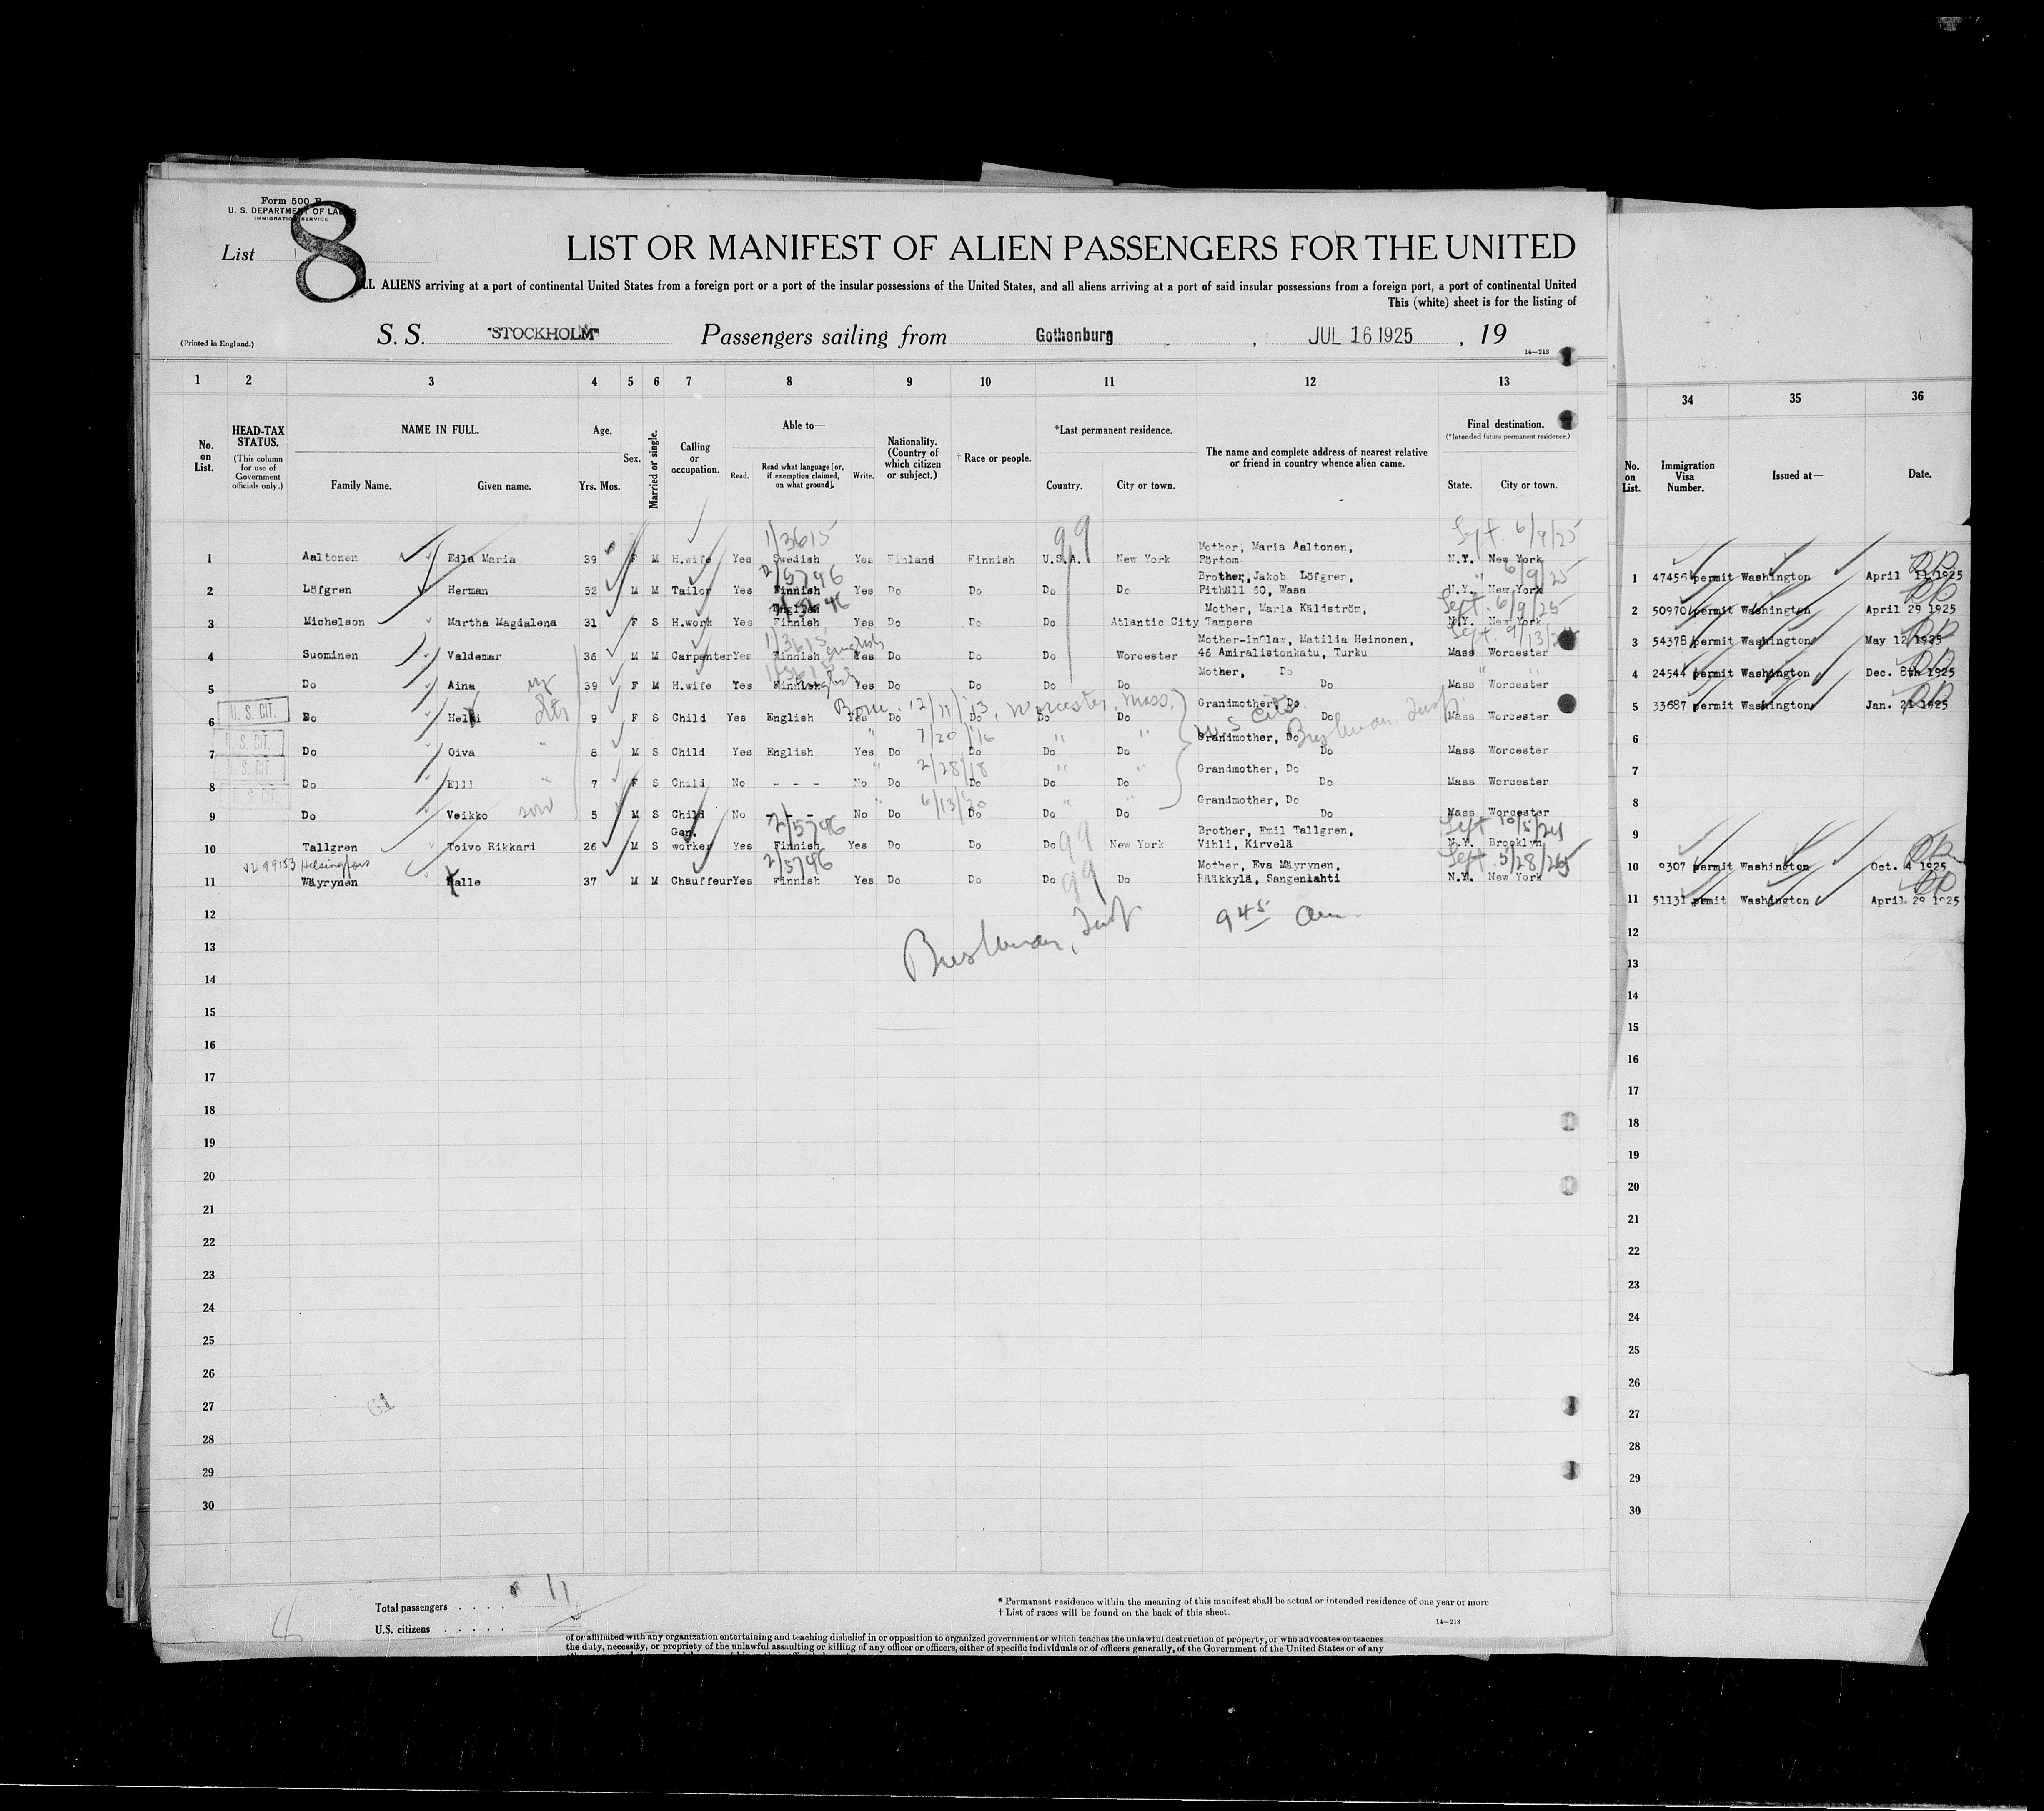 Form 500 B
U. S. DEPARTMENT OF LABOR
IMMIGRATION SERVICE
List 8
LIST OR MANIFEST OF ALIEN PASSENGERS FOR THE UNITED
ALL ALIENS arriving at a port of continental United States from a foreign port or a port of the insular possessions of the United States, and all aliens arriving at a port of said insular possessions from a foreign port, a port of continental United
This (white) sheet is for the listing of
(Printed in England.)
S. S. "STOCKHOLM" Passengers sailing from Gothenburg, JUL 16 1925, 19
14—213
1 2 3 4 5 6 7 8 9 10 11 12 13
No. on List.
HEAD-TAX STATUS.
(This column for use of Government officials only.)
NAME IN FULL.
Family Name. Given name.
Age.
Yrs. Mos.
Sex.
Married or single.
Calling or occupation.
Able to—
Read.
Read what language [or, if exemption claimed, on what ground].
Write.
Nationality. (Country of which citizen or subject.)
† Race or people.
*Last permanent residence.
Country. City or town.
The name and complete address of nearest relative or friend in country whence alien came.
Final destination.
(*Intended future permanent residence.)
State. City or town.
34 35 36
No. on List.
Immigration Visa Number.
Issued at—
Date.
1/3615 99 Sept. 6/9/25
1 Aaltonen Edla Maria 39 F M H.wife Yes Swedish Yes Finland Finnish U.S.A. New York Mother, Maria Aaltonen, Pörtom N.Y. New York
2/5796 " 6/9/25
2 Löfgren Herman 52 M M Tailor Yes Finnish Yes Do Do Do Do Brother, Jakob Löfgrer, Pithäll 60, Wasa N.Y. New York
English Sept. 6/9/25
3 Michelson Martha Magdalena 31 F S H.work Yes Finnish Yes Do Do Do Atlantic City Mother, Maria Käldström, Tampere N.Y. New York
1/3615 English Sept. 9/13/24
4 Suominen Valdemar 36 M M Carpenter Yes Finnish Yes Do Do Do Worcester Mother-in0law, Matilda Heinonen, 46 Amiralistonkatu, Turku Mass Worcester
1/3615 English " "
5 Do Aina 39 F M H.wife Yes Finnish Yes Do Do Do Do Mother, Do Do Mass Worcester
U. S. CIT. Born 12/11/'13, Worcester, Mass,
6 Do Helmi 9 F S Child Yes English Yes Do Do Do Do Grandmother, Do Do Mass Worcester
U. S. CIT. " 7/20/'16 " " U S Cits. Bushman Insp.
7 Do Oiva " 8 M S Child Yes English Yes Do Do Do Do Grandmother, Do Do Mass Worcester
U. S. CIT. " 2/28/18 " "
8 Do Elli " 7 F S Child No - - - No Do Do Do Do Grandmother, Do Do Mass Worcester
U. S. CIT. " 6/13/'20 " "
9 Do Veikko son 5 M S Child No - - - No Do Do Do Do Grandmother, Do Do Mass Worcester
2/5796 99 Sept 10/5/24
10 Tallgren Toivo Rikkard 26 M S Gen. worker Yes Finnish Yes Do Do Do New York Brother, Emil Tallgren, Vihli, Kirvelä N.Y. Brooklyn
99153 Helsingfors 2/5796 99 Sept. 5/28/25
11 Wäyrynen Kalle 37 M M Chauffeur Yes Finnish Yes Do Do Do Do Mother, Eva Mäyrynen, Rääkkylä, Sangenlahti N.Y. New York
Bushman, Insp 9 45 am.
12
13
14
15
16
17
18
19
20
21
22
23
24
25
26
27
28
29
30
1 47456 permit Washington April 11 1925
2 50970 permit Washington April 29 1925
3 54378 permit Washington May 12 1925
4 24544 permit Washington Dec. 8th 1925
5 33687 permit Washington Jan. 21 1925
6
7
8
9
10 9307 permit Washington Oct. 4 1925
11 51131 permit Washington April 29 1925
12
13
14
15
16
17
18
19
20
21
22
23
24
25
26
27
28
29
30
Total passengers . . . . 11
U.S. citizens . . . . .
* Permanent residence within the meaning of this manifest shall be actual or intended residence of one year or more
† List of races will be found on the back of this sheet.
14—213
of or affiliated with any organization entertaining and teaching disbelief in or opposition to organized government or which teaches the unlawful destruction of property, or who advocates or teaches
the duty, necessity, or propriety of the unlawful assaulting or killing of any officer or officers, either of specific individuals or of officers generally, of the Government of the United States or of any